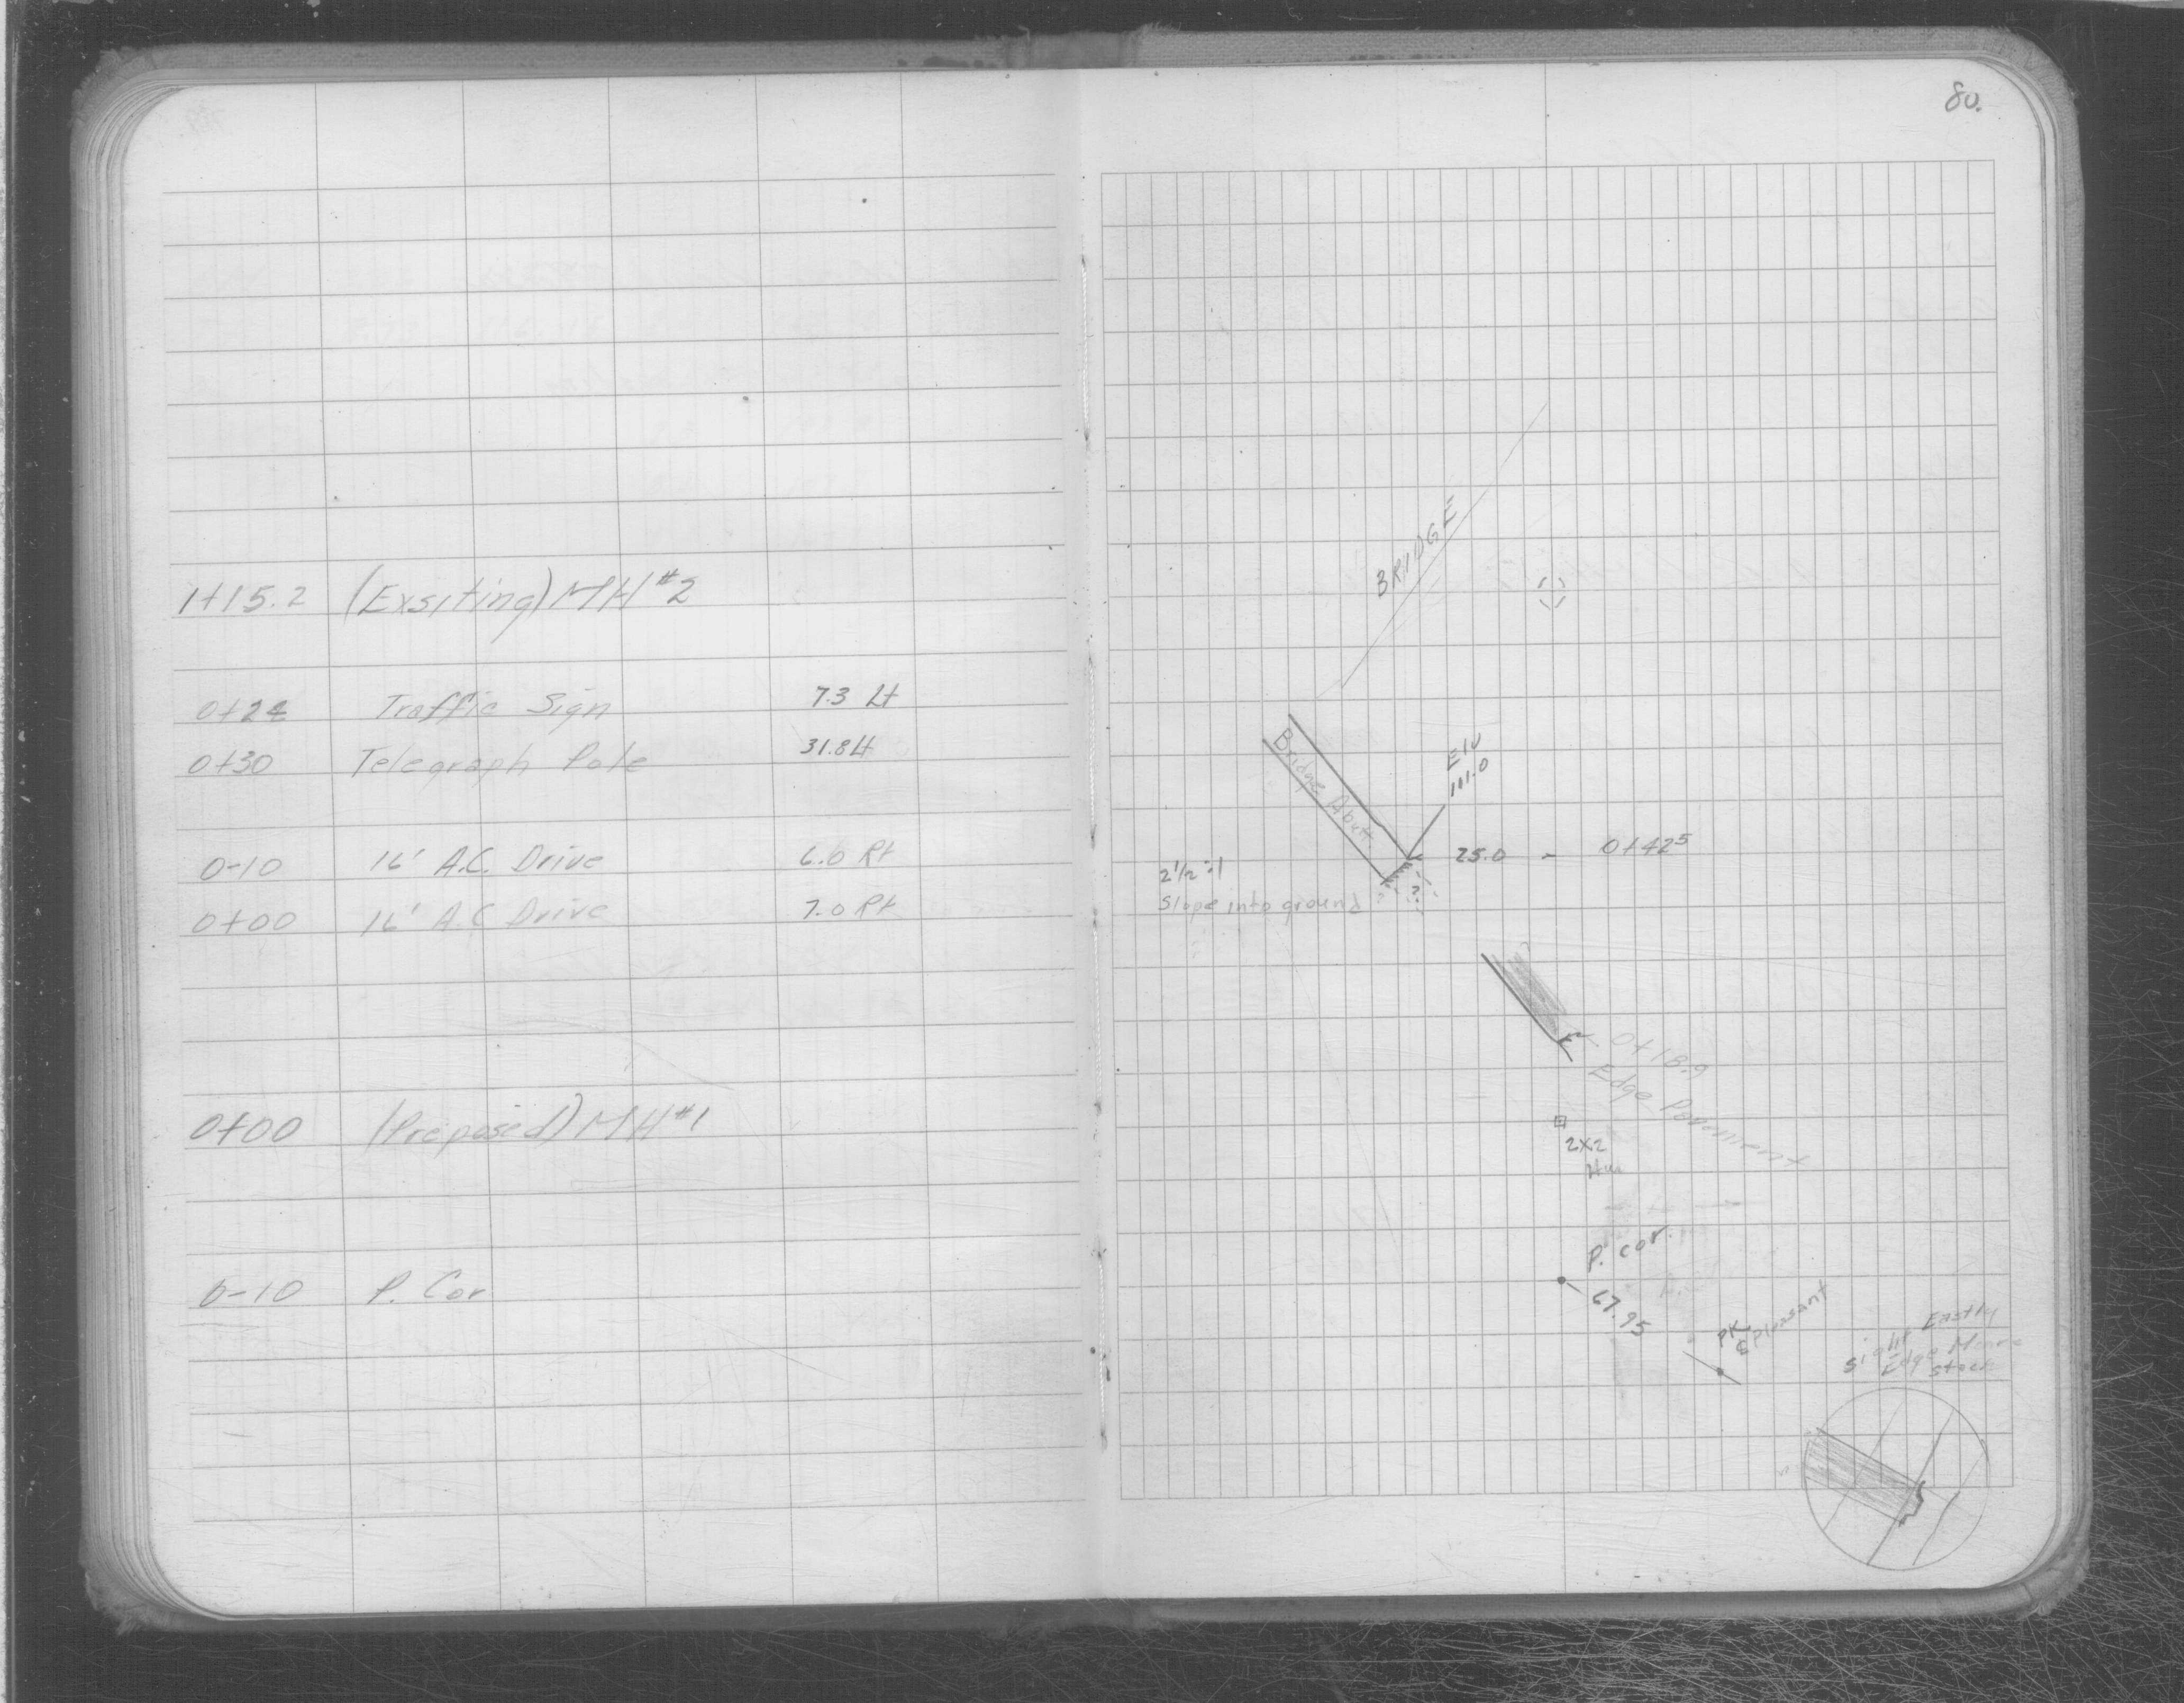 80.
1+15.2 (Exsiting) MH #2
0+24 Traffic Sign 7.3 Lt
0+30 Telegraph Pole 31.8 Lt
0-10 16' A.C. Drive 6.0 Rt
0+00 16' A.C Drive 7.0 Rt
0+00 (Preposed) MH #1
0-10 P. Cor
BRIDGE
Bridge Abutt.
Elv
111.0
25.0 - 0+42⁵
2½:1
Slope into ground
? ?
0+18.9
Edge Pavement
2x2
P. cor.
67.95
PK
℄ Pleasant
Sight Eastly
Edge